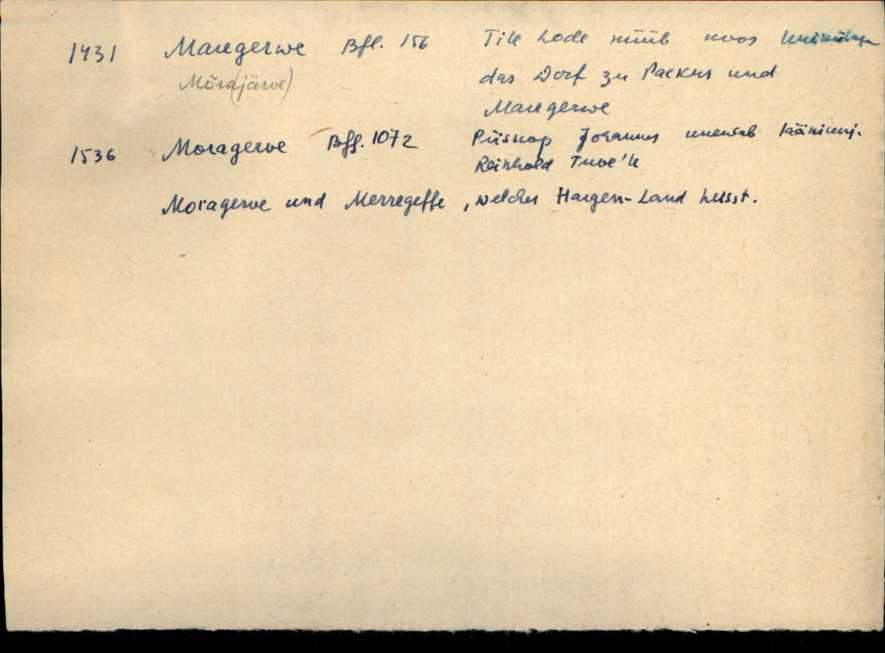 1431 Maregerwe Bfl. 156 Tile Lode müüb koos
Mõra(järve) das Dorf zu Paekus und
Maregerwe
1536 Moragerwe Bfl. 1072 Piiskop Johannes
Reinhold
Moragerwe und Merregeffe, welches Hargen-Land heisst.